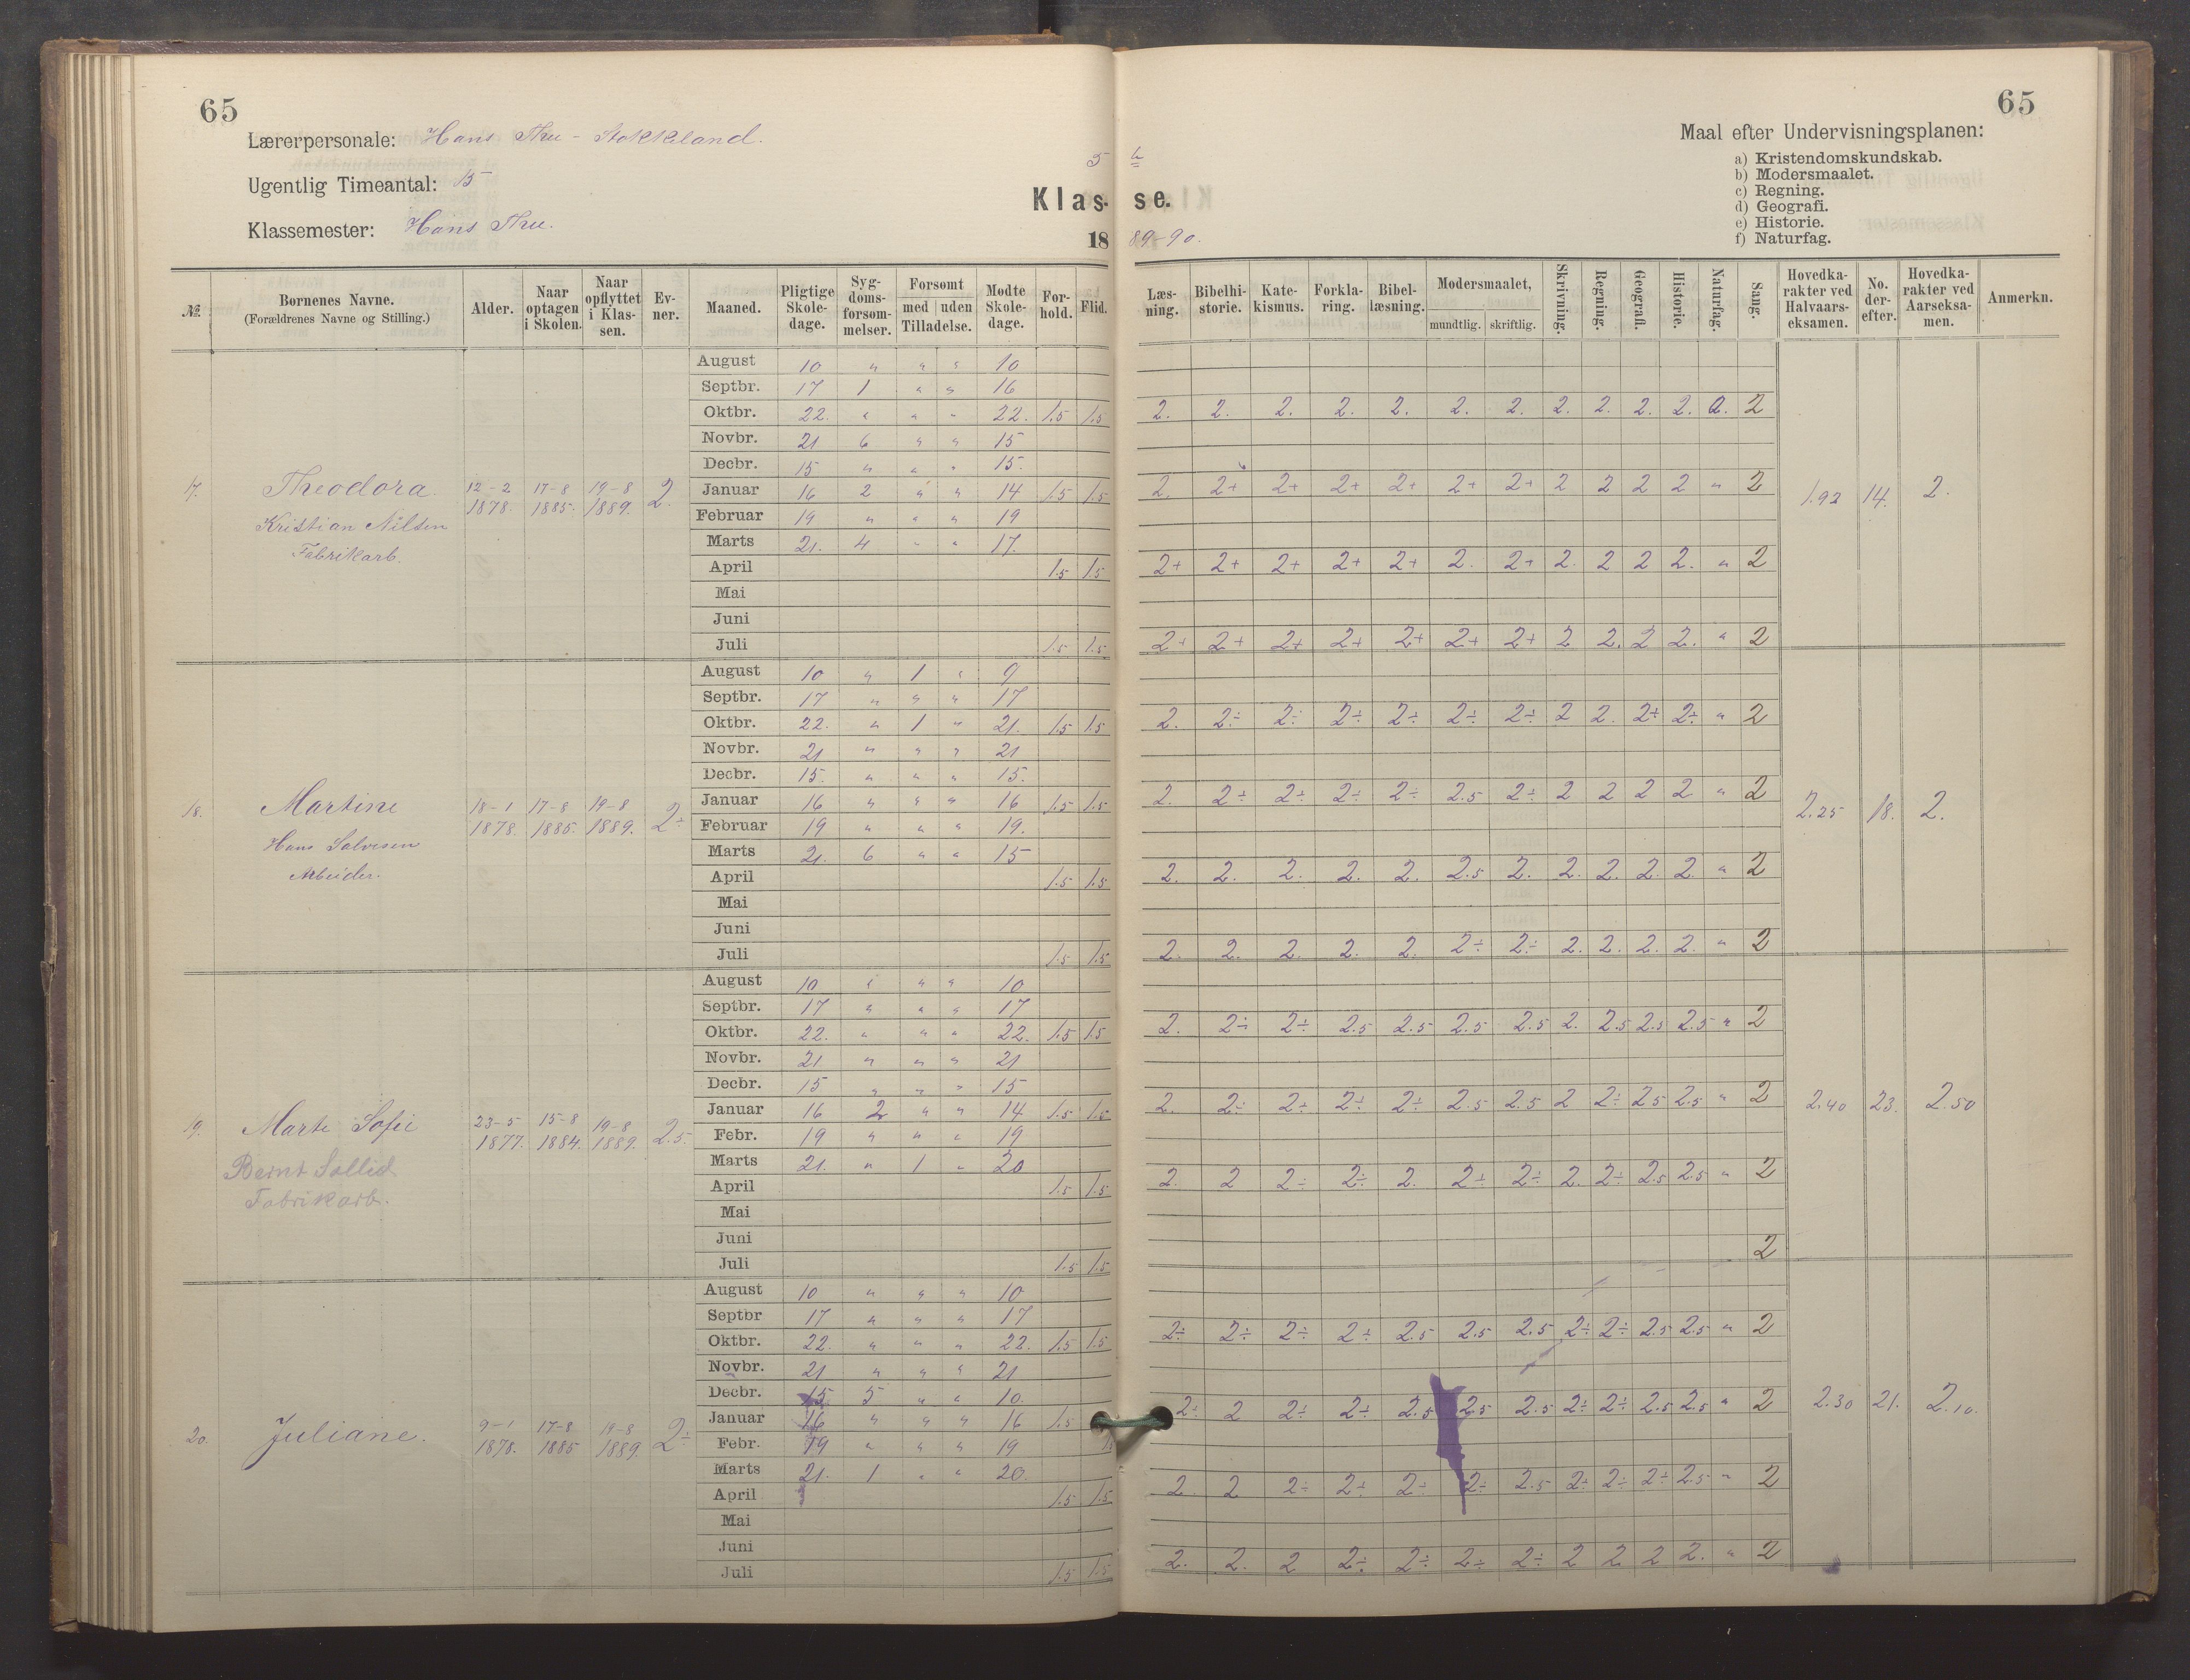 65
Lærerpersonale: Hans Thu - Stokkeland.
Ugentlig Timeantal: 15
Klassemester: Hans Thu.
5
Klas-
18
№.
Børnenes Navne.
(Forældrenes Navne og Stilling.)
Alder.
Naar optagen i Skolen.
Naar opflyttet i Klas-sen.
Ev-ner.
Maaned.
Pligtige Skole-dage.
Syg-doms-forsøm-melser.
Forsømt
med | uden
Tilladelse.
Mødte Skole-dage.
For-hold.
Flid.
17. Theodora. 12-2 1878. 17-8 1885. 19-8 1889. 2.
Kristian Nilsen
Fabrikarb.
August 10 " " " 10
Septbr. 17 1 " " 16
Oktbr. 22. " " " 22. 1.5 1.5
Novbr. 21 6 " " 15
Decbr. 15 " " " 15.
Januar 16 2 " " 14 1.5 1.5
Februar 19 " " " 19
Marts 21. 4 " " 17.
April 1.5 1.5
Mai
Juni
Juli 1.5 1.5
18. Martine 18-1 1878. 17-8 1885. 19-8 1889. 2÷
Hans Salvesen
Arbeider.
August 10 " 1 " 9
Septbr. 17 " " " 17
Oktbr. 22. " 1 " 21. 1.5 1.5
Novbr. 21 " " " 21
Decbr. 15. " " " 15.
Januar 16 " " " 16 1.5 1.5
Februar 19 " " " 19.
Marts 21. 6 " " 15
April 1.5 1.5
Mai
Juni
Juli 1.5 1.5
19. Marte Sofie 23-5 1877. 15-8 1884. 19-8 1889. 2.5.
Bernt Sollid
Fabrikarb.
August 10 " " " 10
Septbr. 17 " " " 17
Oktbr. 22. " " " 22. 1.5 1.5
Novbr. 21 " " " 21
Decbr. 15 " " " 15
Januar 16 2 " " 14 1.5 1.5
Febr. 19 " " " 19
Marts 21. " 1 " 20
April 1.5 1.5
Mai
Juni
Juli 1.5 1.5
20. Juliane. 9-1 1878. 17-8 1885 19-8 1889. 2÷
August 10 " " " 10
Septbr 17 " " " 17
Oktbr. 22. " " " 22. 1.5 1.5
Novbr. 21 " " " 21
Decbr. 15 5 " " 10.
Januar 16 " " " 16 1.5
Febr. 19 " " " 19
Marts 21. 1 " " 20.
April 1.5 1.5
Mai
Juni
Juli 1.5 1.5
65
Maal efter Undervisningsplanen:
a) Kristendomskundskab.
b) Modersmaalet.
c) Regning.
d) Geografi.
e) Historie.
f) Naturfag.
se.
89-90.
Læs-ning.
Bibelhi-storie.
Kate-kismus.
Forkla-ring.
Bibel-læsning.
Modersmaalet,
mundtlig. | skriftlig.
Skrivning.
Regning.
Geografi.
Historie.
Naturfag.
Sang.
Hovedka-rakter ved Halvaars-eksamen.
No. der-efter.
Hovedka-rakter ved Aarseksa-men.
Anmerkn.
2. 2. 2. 2. 2. 2. 2. 2. 2. 2. 2. 2. 2
2. 2+ 2+ 2+ 2+ 2+ 2+ 2 2 2 2 " 2 1.92 14. 2.
2+ 2+ 2+ 2+ 2+ 2. 2+ 2. 2 2 2. " 2
2+ 2+ 2+ 2+ 2+ 2+ 2+ 2 2. 2 2. " 2
2. 2÷ 2÷ 2÷ 2÷ 2÷ 2÷ 2 2. 2÷ 2÷ " 2
2. 2÷ 2÷ 2÷ 2÷ 2.5 2÷ 2 2 2 2 " 2 2.25 18. 2.
2. 2. 2. 2. 2. 2.5 2. 2. 2. 2. 2. " 2
2. 2. 2. 2. 2. 2÷ 2÷ 2. 2. 2. 2. " 2
2. 2÷ 2÷ 2.5 2.5 2.5 2.5 2. 2.5 2.5 2.5 " 2
2. 2÷ 2÷ 2÷ 2÷ 2.5 2.5 2 2÷ 2.5 2.5 " 2 2.40 23. 2.50
2. 2 2÷ 2÷ 2. 2÷ 2÷ 2. 2÷ 2.5 2.5 " 2
2
2÷ 2÷ 2÷ 2÷ 2.5 2.5 2.5 2÷ 2÷ 2.5 2.5 " 2
2÷ 2 2÷ 2÷ 2.5 2.5 2.5 2÷ 2÷ 2.5 2.5 " 2 2.30 21. 2.10.
2. 2 2÷ 2÷ 2÷ 2÷ 2.5 2÷ 2÷ 2÷ 2.5 " 2
2. 2. 2 2÷ 2÷ 2÷ 2÷ 2 2 2 2. " 2